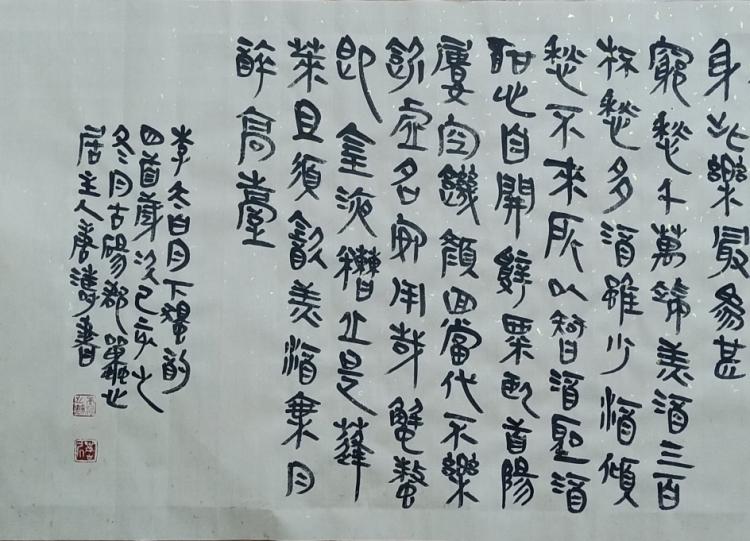 身此樂最為甚
窮愁千萬端美酒三百
杯愁多酒雖少酒傾
愁不來所以智酒聖酒
酣心自開辭粟臥首陽
屢空饑顏回當代不樂
飲虛名安用哉蟹螯
即金液糟丘是蓬
萊且須飲美酒乘月
醉高臺
李太白月下獨酌
四首己亥之
冬月古碭郡
居主人唐書